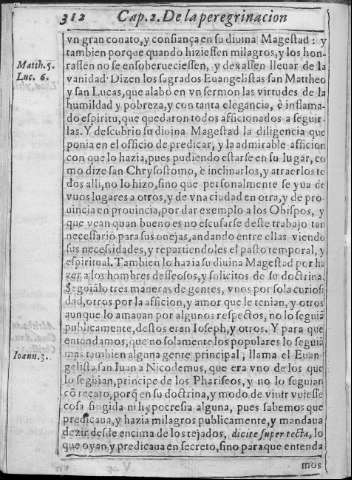 312 Cap. 2. De la peregrinacion
vn gran conato, y confiança en su diuina Magestad: y
tambien porque quando hiziessen milagros, y los hon-
rassen no se ensoberueciessen, y dexassen lleuar de la
Matth. 5. vanidad. Dizen los sagrados Euangelistas san Mattheo
Luc. 6. y san Lucas, que alabò en vn sermon las virtudes de la
humildad y pobreza, y con tanta elegancia, è inflama-
do espiritu, que quedaron todos afficionados a seguir-
las. Y descubrio su diuina Magestad la diligencia que
ponia en el officio de predicar, y la admirable afficion
con que lo hazia, pues pudiendo estarse en su lugar, co
mo dize san Chrysostomo, è inclinarlos, y atraerlos to
dos alli, no lo hizo, sino que personalmente se yua de
vnos lugares a otros, y de vna ciudad en otra, y de pro
uincia en prouincia, por dar exemplo a los Obispos, y
que vean quan bueno es no escusarse deste trabajo tan
necessario para sus ouejas, andando entre ellas viendo
sus necessidades, y repartiendoles el pasto temporal, y
espiritual. Tambien lo hazia su diuina Magestad por ha
zer a los hombres desseosos, y solicitos de su doctrina.
Seguiãlo tres maneras de gentes, vnos por sola curiosi
dad, otros por la afficion, y amor que le tenian, y otros
aunque lo amauan por algunos respectos, no lo seguiã
publicamente, destos eran Ioseph, y otros. Y para que
entendamos, que no solamente los populares lo seguiã
Ioann. 3. mas tambien alguna gente principal, llama el Euan-
gelista san Iuan a Nicodemus, que era vno de los que
lo seguian, principe de los Phariseos, y no lo seguian
cõ recato, porq̃ en su doctrina, y modo de viuir vuiesse
cosa fingida ni hypocresia alguna, pues sabemos que
predicaua, y hazia milagros publicamente, y mandaua
dezir desde encima de los tejados, dicite super tecta, lo
que oyan y predicaua en secreto, sino para que entenda
mos